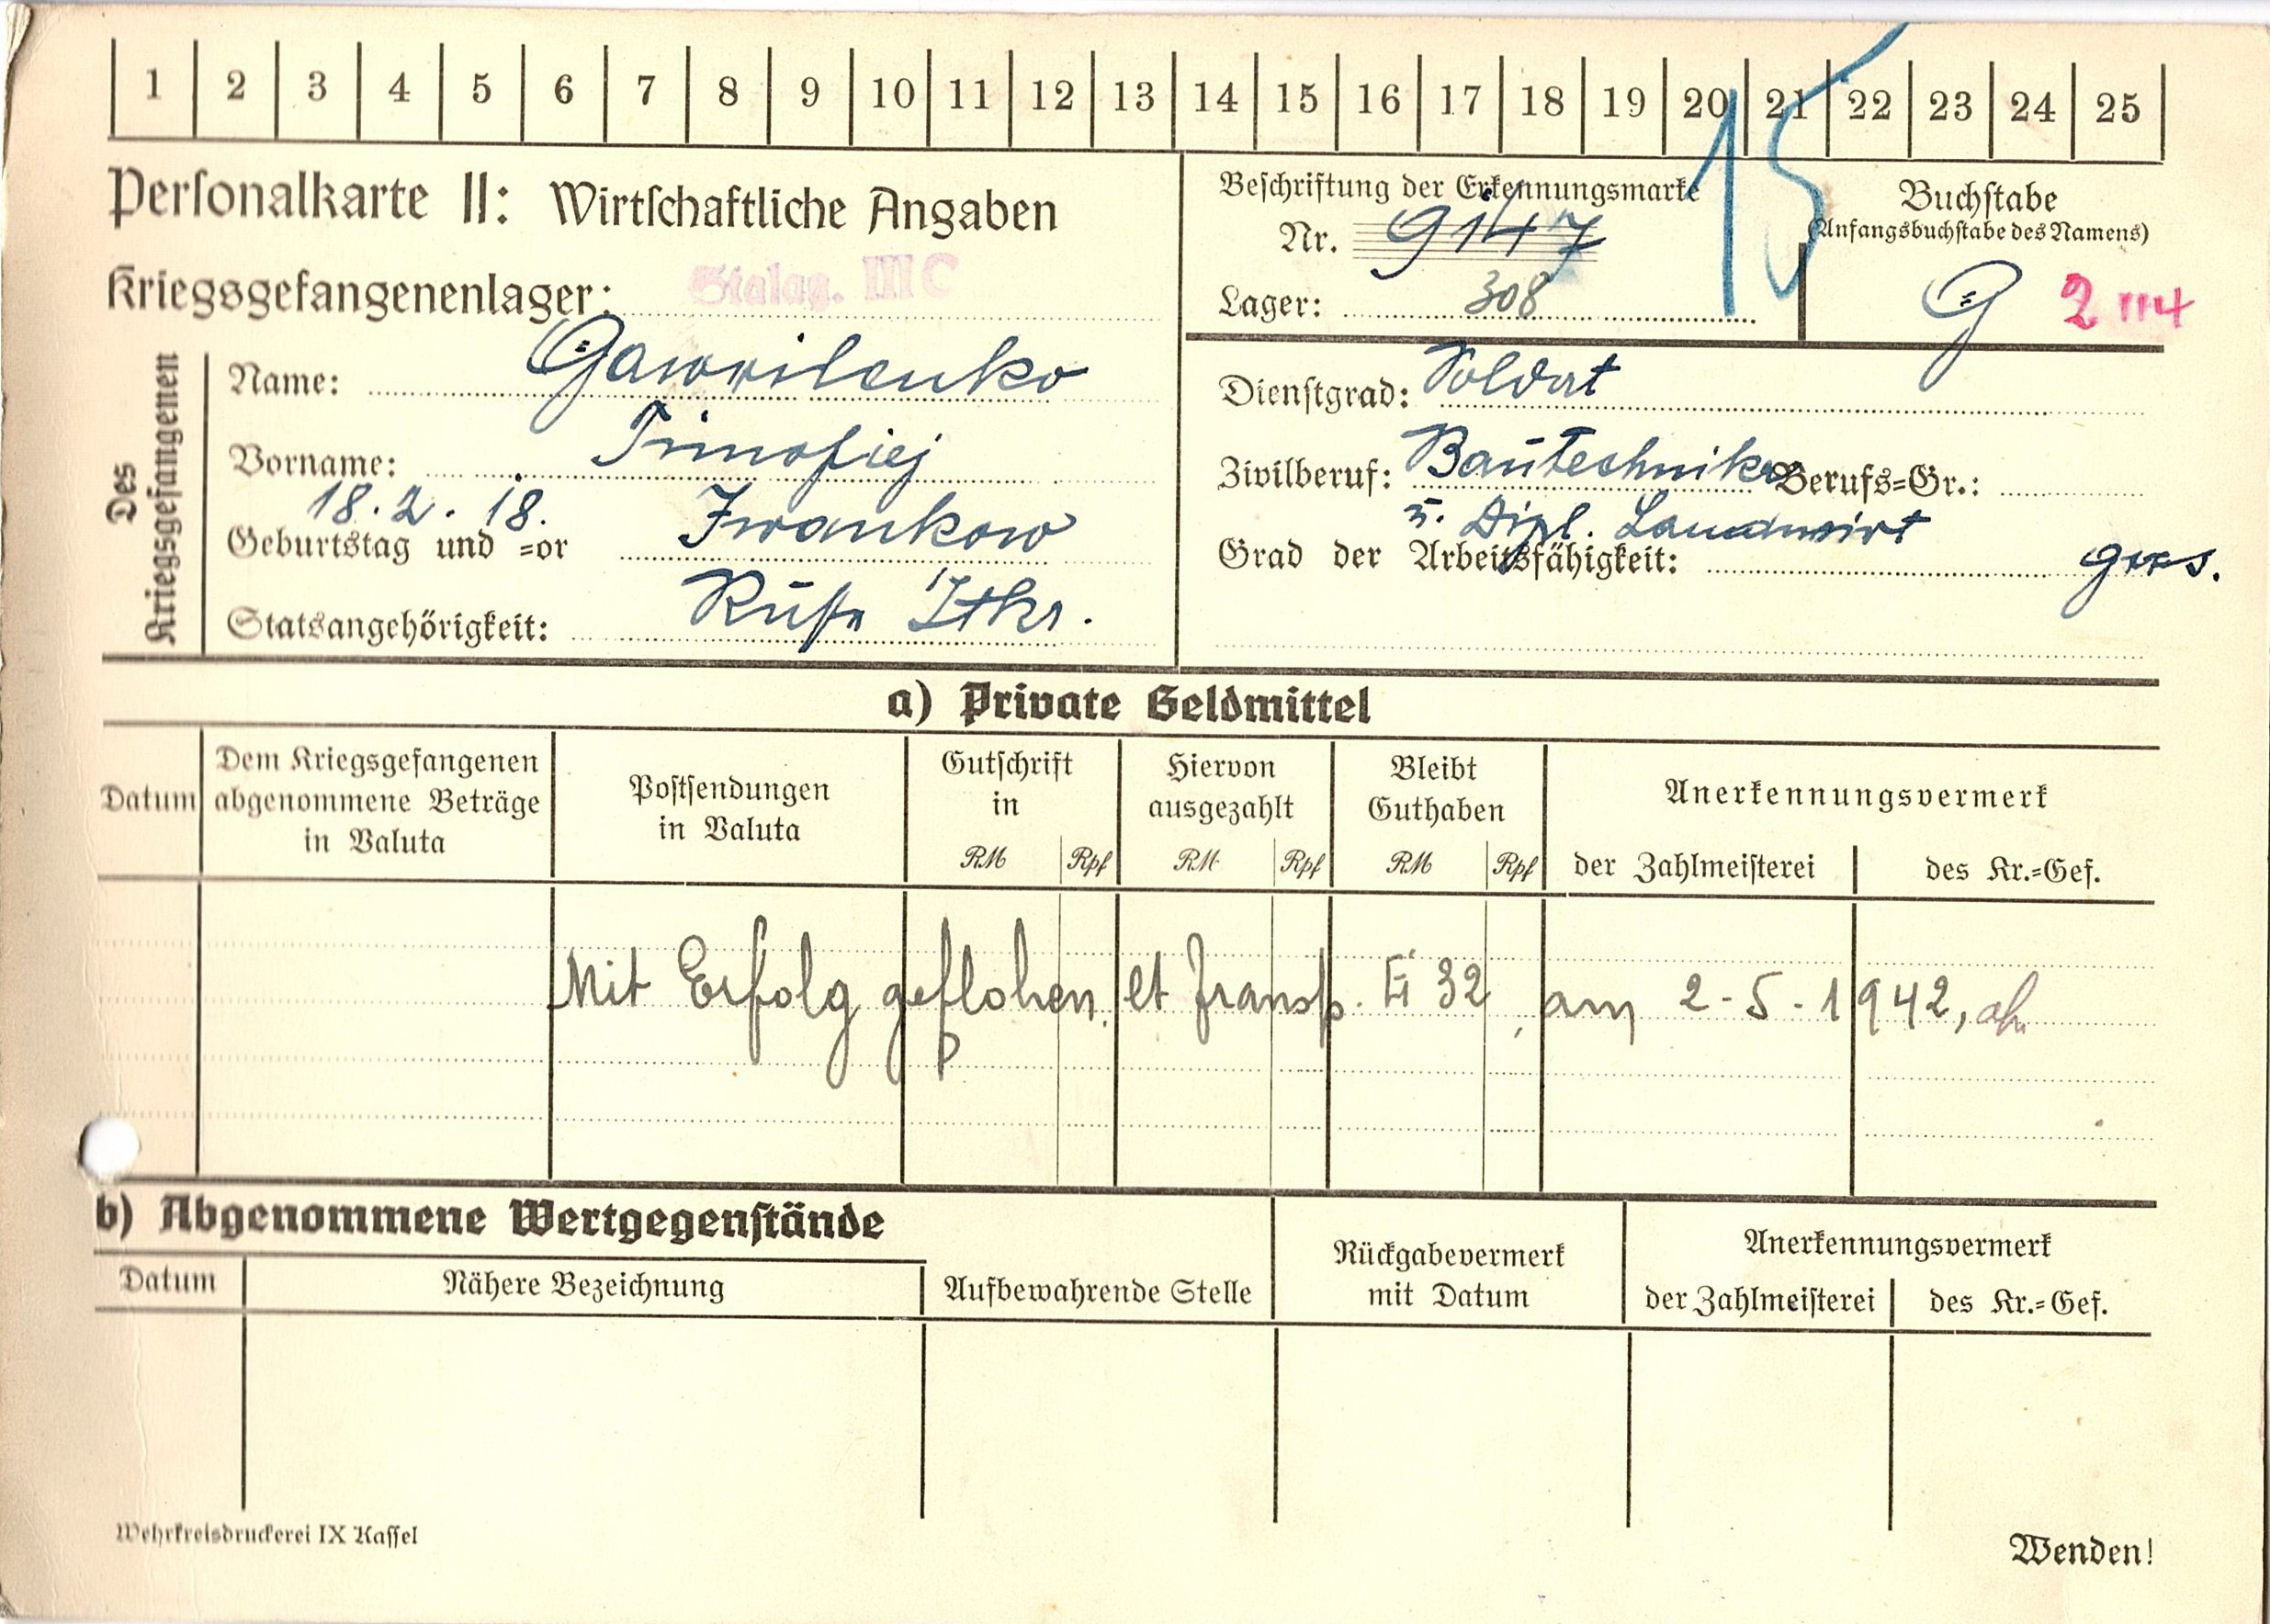 1 2 3 4 5 6 7 8 9 10 11 12 13 14 15 16 17 18 19 20 21 22 23 24 25
15
Personalkarte II: Wirtschaftliche Angaben
Kriegsgefangenenlager: Stalag. III C
Beschriftung der Erkennungsmarke
Nr. 9147
Lager: 308
Buchstabe
(Anfangsbuchstabe des Namens)
G 2
Des Kriegsgefangenen
Name: Gawrilenko
Vorname: Timofiej
18.2.18. Iwankow
Geburtstag und =or
Statsangehörigkeit:
Dienstgrad: Soldat
Zivilberuf: Bautechniker Berufs=Gr.:
u. Dipl. Landwirt
Grad der Arbeitsfähigkeit:
a) Private Geldmittel
Datum
Dem Kriegsgefangenen
abgenommene Beträge
in Valuta
Postsendungen
in Valuta
Gutschrift
in
RM Rpf
Hiervon
ausgezahlt
RM Rpf
Bleibt
Guthaben
RM Rpf
Anerkennungsvermerk
der Zahlmeisterei des Kr.=Gef.
Mit Erfolg geflohen, lt Transp. 32, am 2-5-1942,
b) Abgenommene Wertgegenstände
Datum
Nähere Bezeichnung
Aufbewahrende Stelle
Rückgabevermerk
mit Datum
Anerkennungsvermerk
der Zahlmeisterei des Kr.=Gef.
Wehrkreisdruckerei IX Kassel
Wenden!